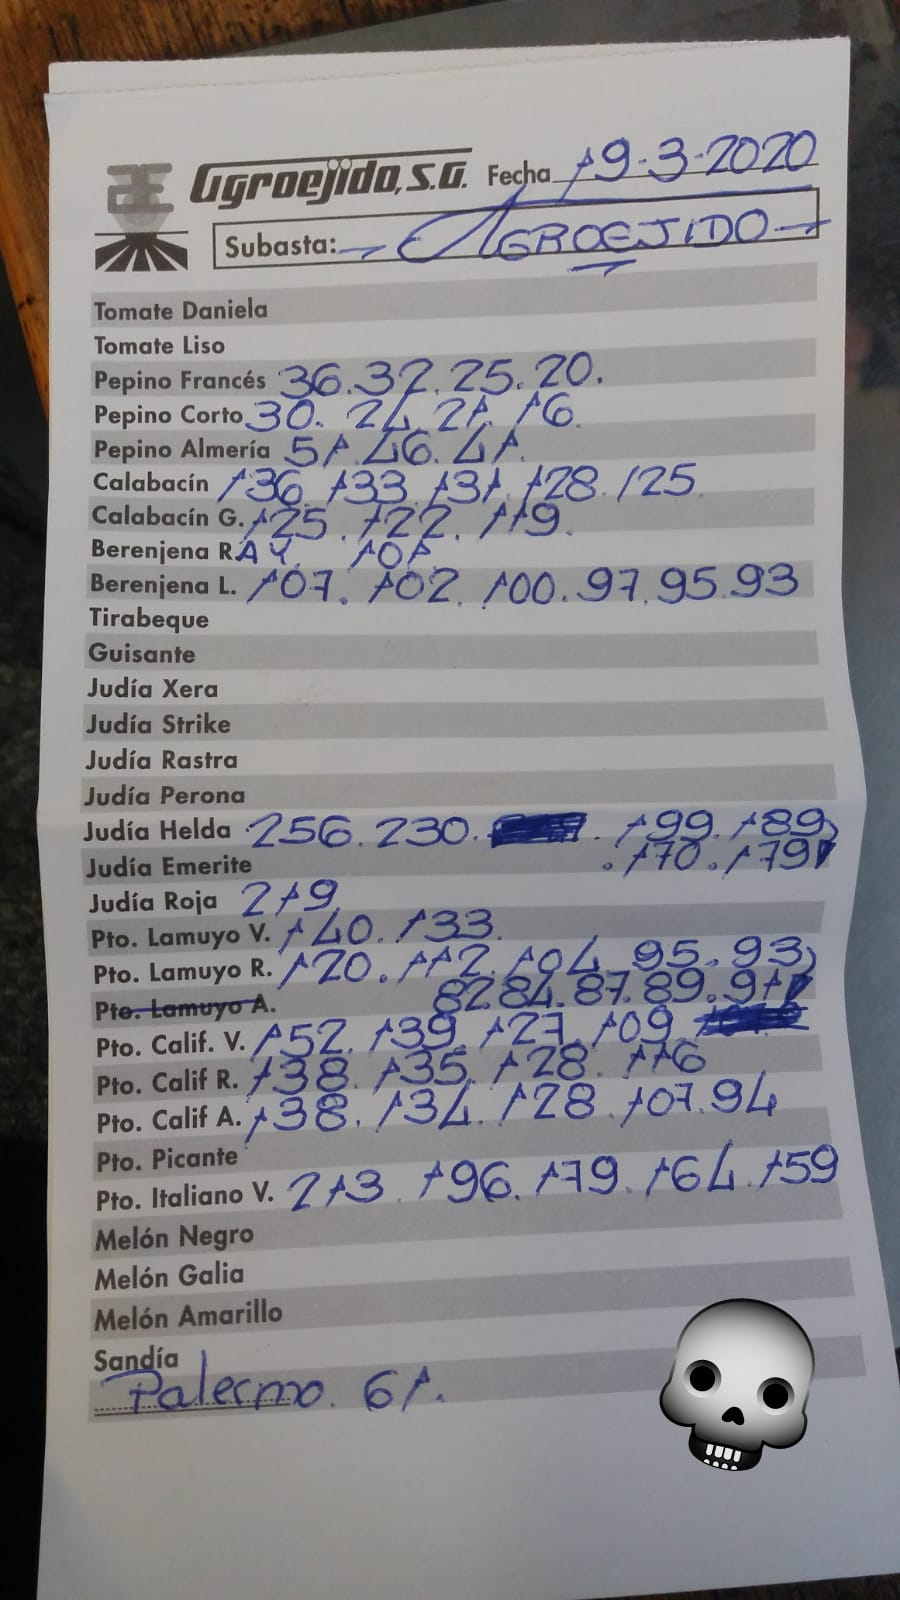 Agroejido, S.A. Fecha 19-3-2020
Subasta: AGROEJIDO
Tomate Daniela
Tomate Liso
Pepino Francés 36. 32. 25. 20.
Pepino Corto 30. 24. 21. 16.
Pepino Almería 51. 46. 41.
Calabacín 136. 133. 131. 128. 125
Calabacín G. 125. 122. 119.
Berenjena RAY. 101.
Berenjena L. 107. 102. 100. 97. 95. 93
Tirabeque
Guisante
Judía Xera
Judía Strike
Judía Rastra
Judía Perona
Judía Helda 256. 230. . 199. 189
Judía Emerite . 170. 179
Judía Roja 219
Pto. Lamuyo V. 140. 133.
Pto. Lamuyo R. 120. 112. 104. 95. 93
Pto. Lamuyo A. 82. 84. 87. 89. 91
Pto. Calif. V. 152. 139. 127. 109.
Pto. Calif R. 138. 135. 128. 116
Pto. Calif A. 138. 134. 128. 107. 94
Pto. Picante
Pto. Italiano V. 213. 196. 179. 164. 159
Melón Negro
Melón Galia
Melón Amarillo
Sandía
Palermo. 61.